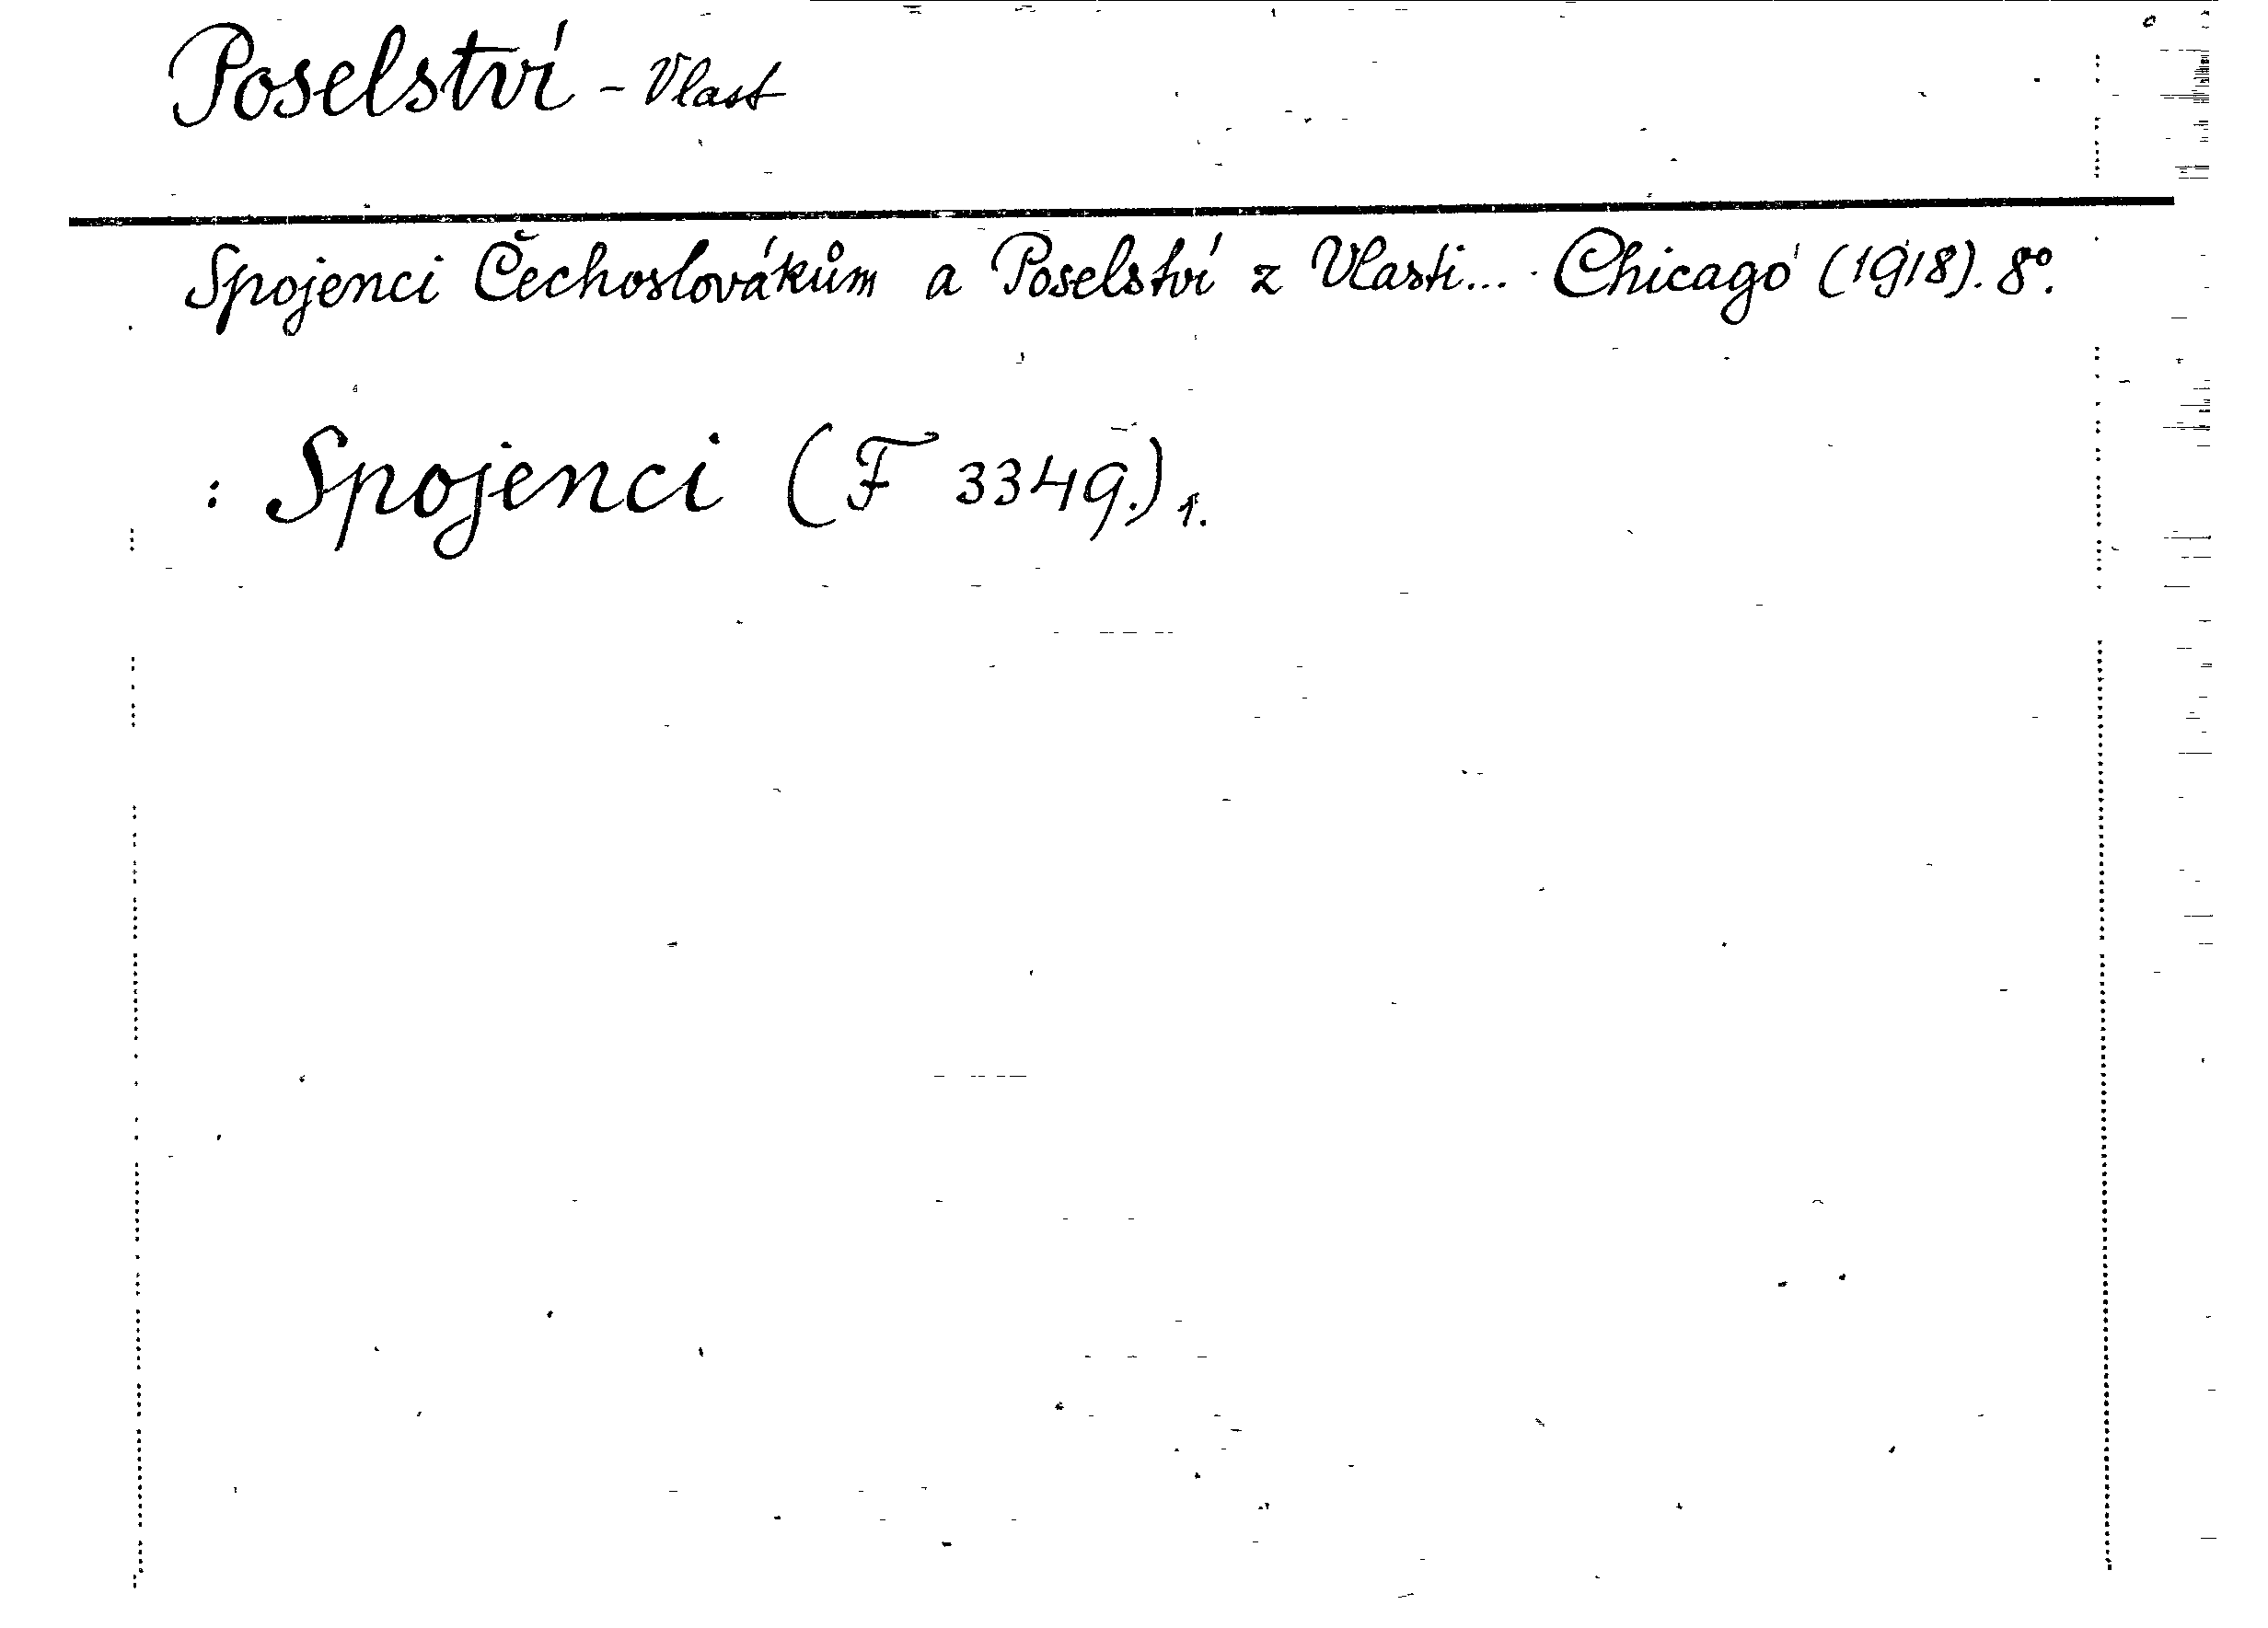 Poselství - Vlast
Spojenci Čechoslovákům a Poselství z Vlasti... Chicago (1918). 8°.
: Spojenci (F 3349.) 1.